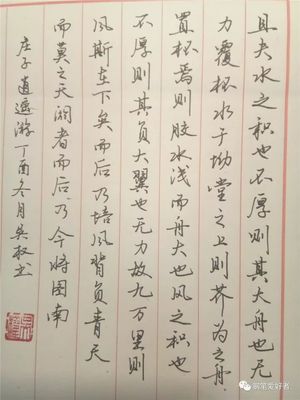 且夫水之积也不厚则其大舟也无
力覆杯水于坳堂之上则芥为之舟
置杯焉则胶水浅而舟大也风之积也
不厚则其负大翼也无力故九万里则
风斯在下矣而后乃培风背负青天
而莫之夭阏者而后乃今将图南
庄子逍遥游丁酉冬月吴权书
钢笔爱好者